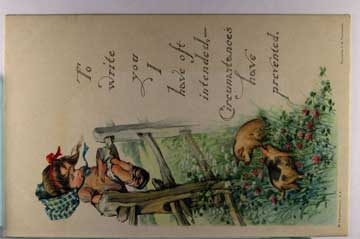 To
write
you
I
have oft
intended,—
Circumstances
have
prevented.